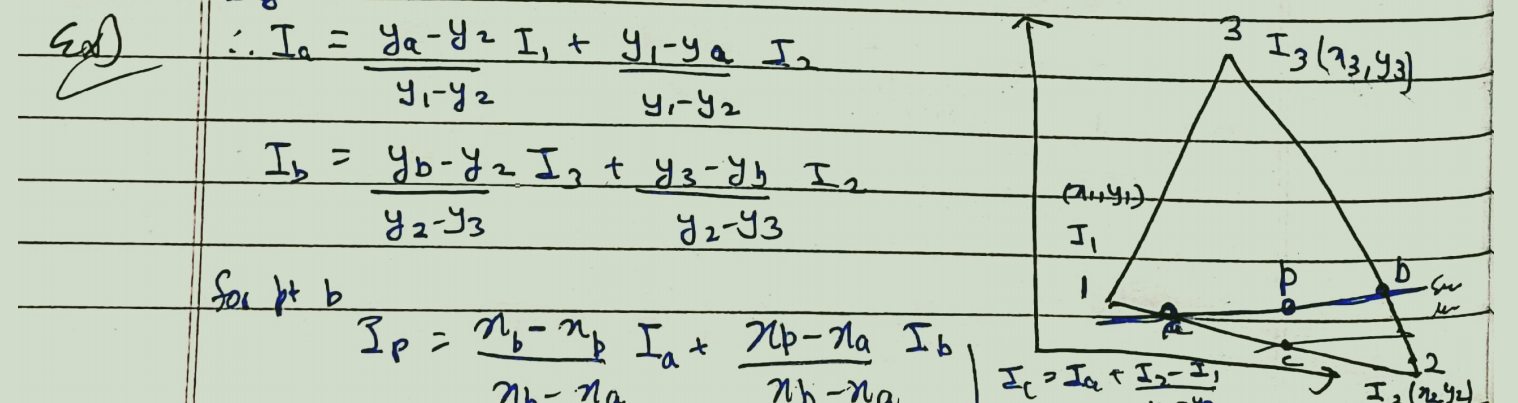 ∴ Ia = (ya-y2)/(y1-y2) I1 + (y1-ya)/(y1-y2) I2
Ib = (yb-y2)/(y2-y3) I3 + (y3-yb)/(y2-y3) I2
for pt b
Ip = (xb-xp)/(xb-xa) Ia + (xp-xa)/(xb-xa) Ib
3 I3(x3,y3)
(x1,y1)
I1
1
p
b
a
c
2
Ic = Ia + I2-I1
I2(x2,y2)